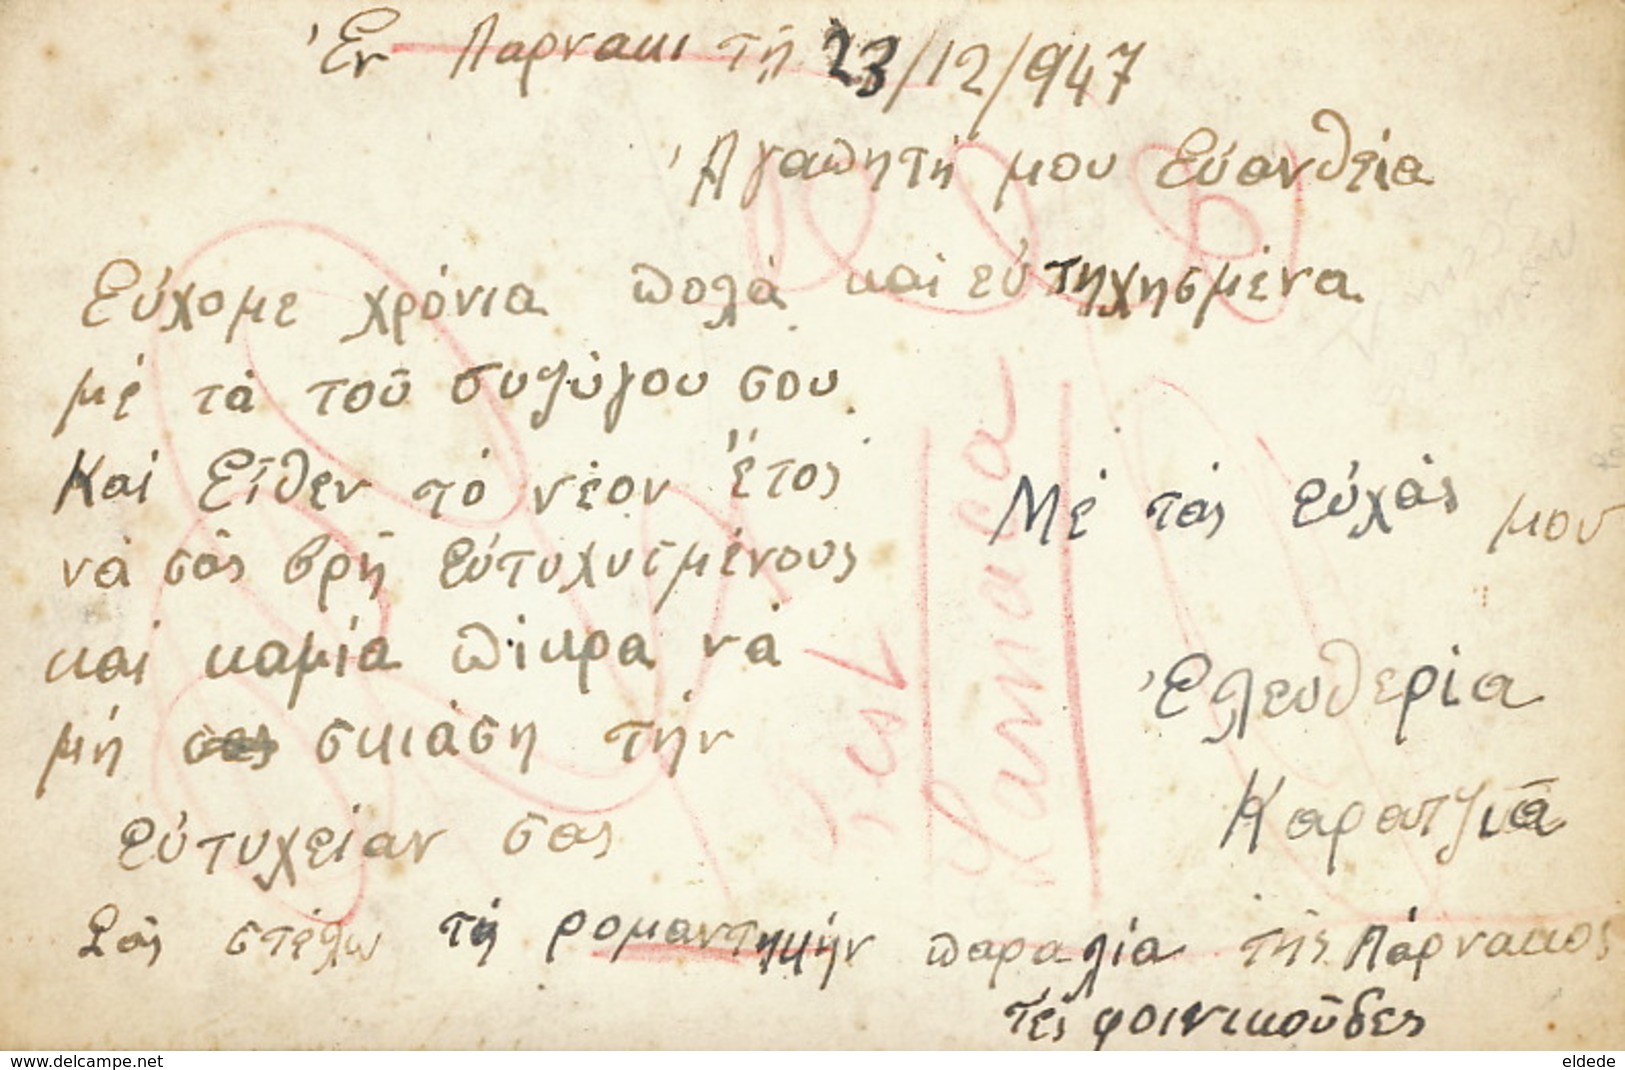 Ἐν Λαρνακι τῇ 23/12/947
Ἀγαπητή μου Εὐανθεία
Εὐχομε χρόνια πολά καί εὐτηχησμένα
μέ τά τοῦ συζύγου σου.
Καί Εἴθεν τό νέον ἔτος
νά σᾶς βρῆ εὐτυχυσμένους
καί καμία πίκρα νά
μή σκιάση τήν
εὐτυχείαν σας
Μέ τάς εὐχάς μου
Ἐλευθερία
Καρατζιᾶ
Σᾶς στέλω τή ρομαντηκήν παραλία τῆς Λάρνακος
τές φοινικοῦδες
Larnaca
www.delcampe.net
eldede